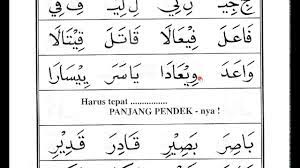 فَاعَلَ فِيْعَالَا قَاتَلَ قِيْتَالَا
وَاعَدَ وِيْعَادَا يَاسَرَ يِيْسَارَا
Harus tepat ................
PANJANG PENDEK - nya !
بَاصِرَ بَصِيْرِ قَادِرَ قَدِيْرِ